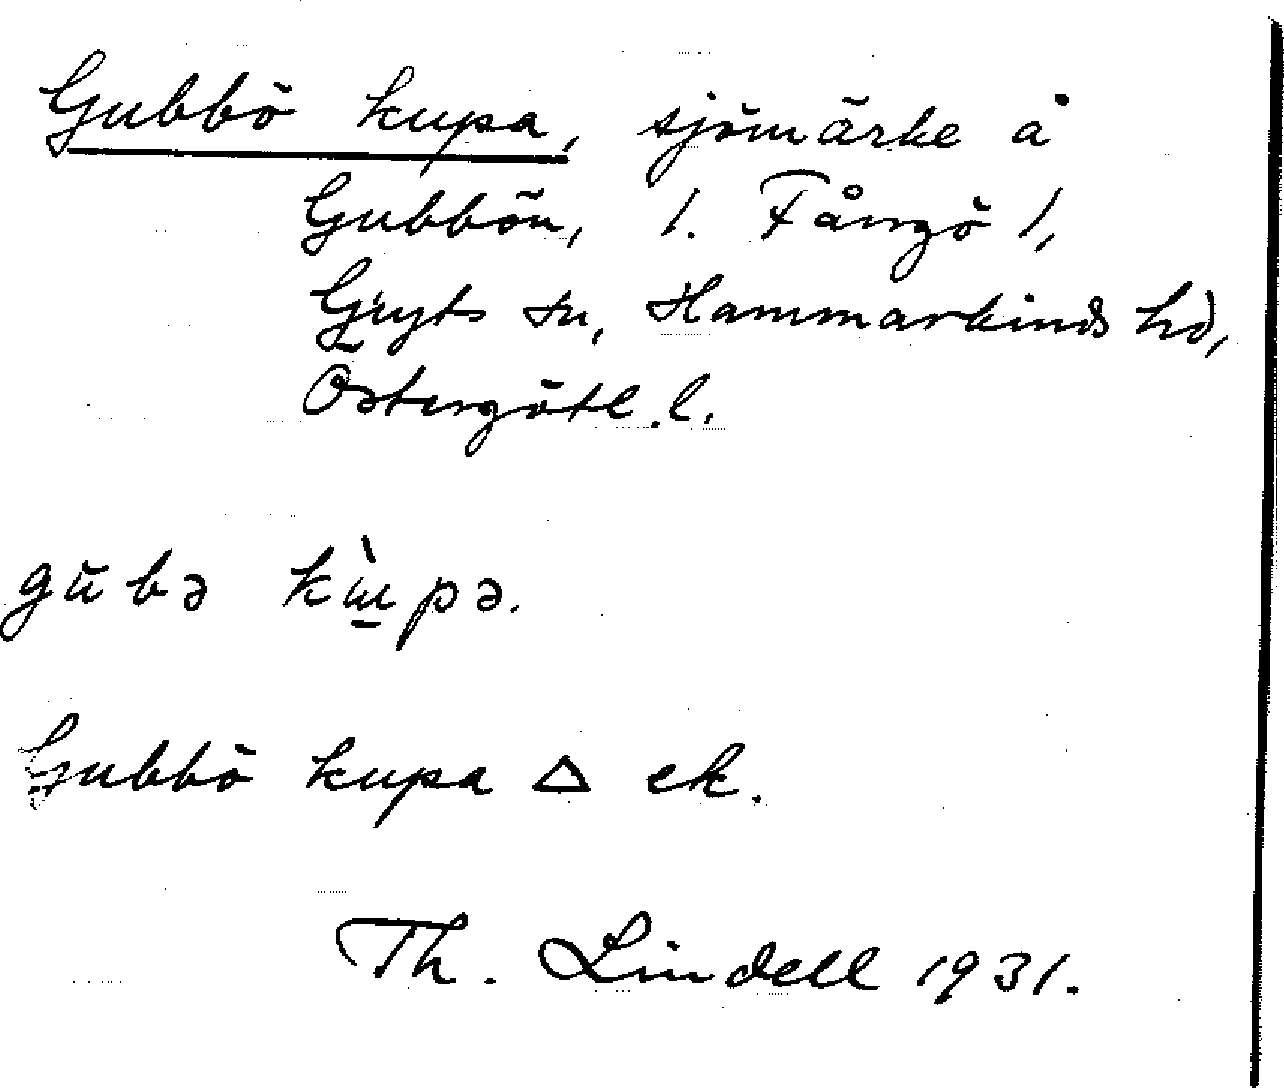 Gubbö kupa, sjömärke å
Gubbön, 1. Fångö 1,
Gryts sn, Hammarkinds hd,
Östergötl. l.
gŭbə kùpə.
Gubbö kupa △ ek.
Th. Lindell 1931.